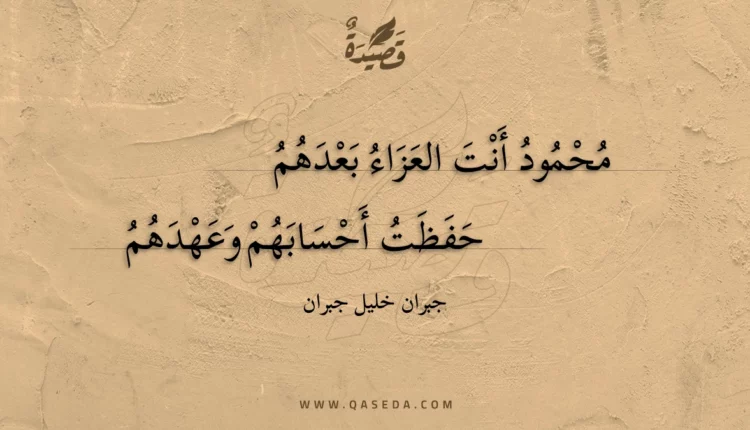 قَصِيدَةٌ
مُحْمُودُ أَنْتَ العَزَاءُ بَعْدَهُمُ
حَفَظَتُ أَحْسَابَهُمْ وَعَهْدَهُمُ
جبران خليل جبران
WWW.QASEDA.COM